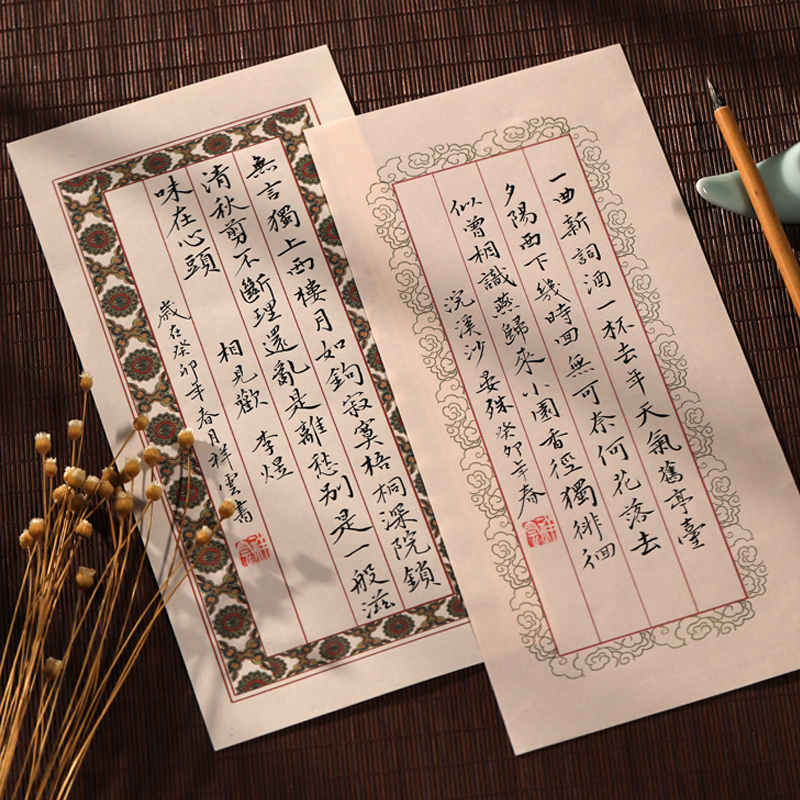 一曲新詞酒一杯去年天氣舊亭臺
夕陽西下幾時回無可奈何花落去
似曾相識燕歸來小園香徑獨徘徊
浣溪沙 晏殊 癸卯年春
無言獨上西樓月如鉤寂寞梧桐深院鎖
清秋剪不斷理還亂是離愁別是一般滋
味在心頭
相見歡 李煜
歲在癸卯年春月祥雲書